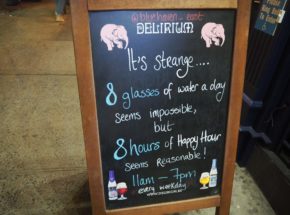 @bluehaven_east
DELIRIUM
It's strange....
8 glasses of water a day
seems impossible,
but
8 hours of Happy Hour
seems Reasonable!
11am - 7pm
every workday
WWW.DELIRIUM.BE